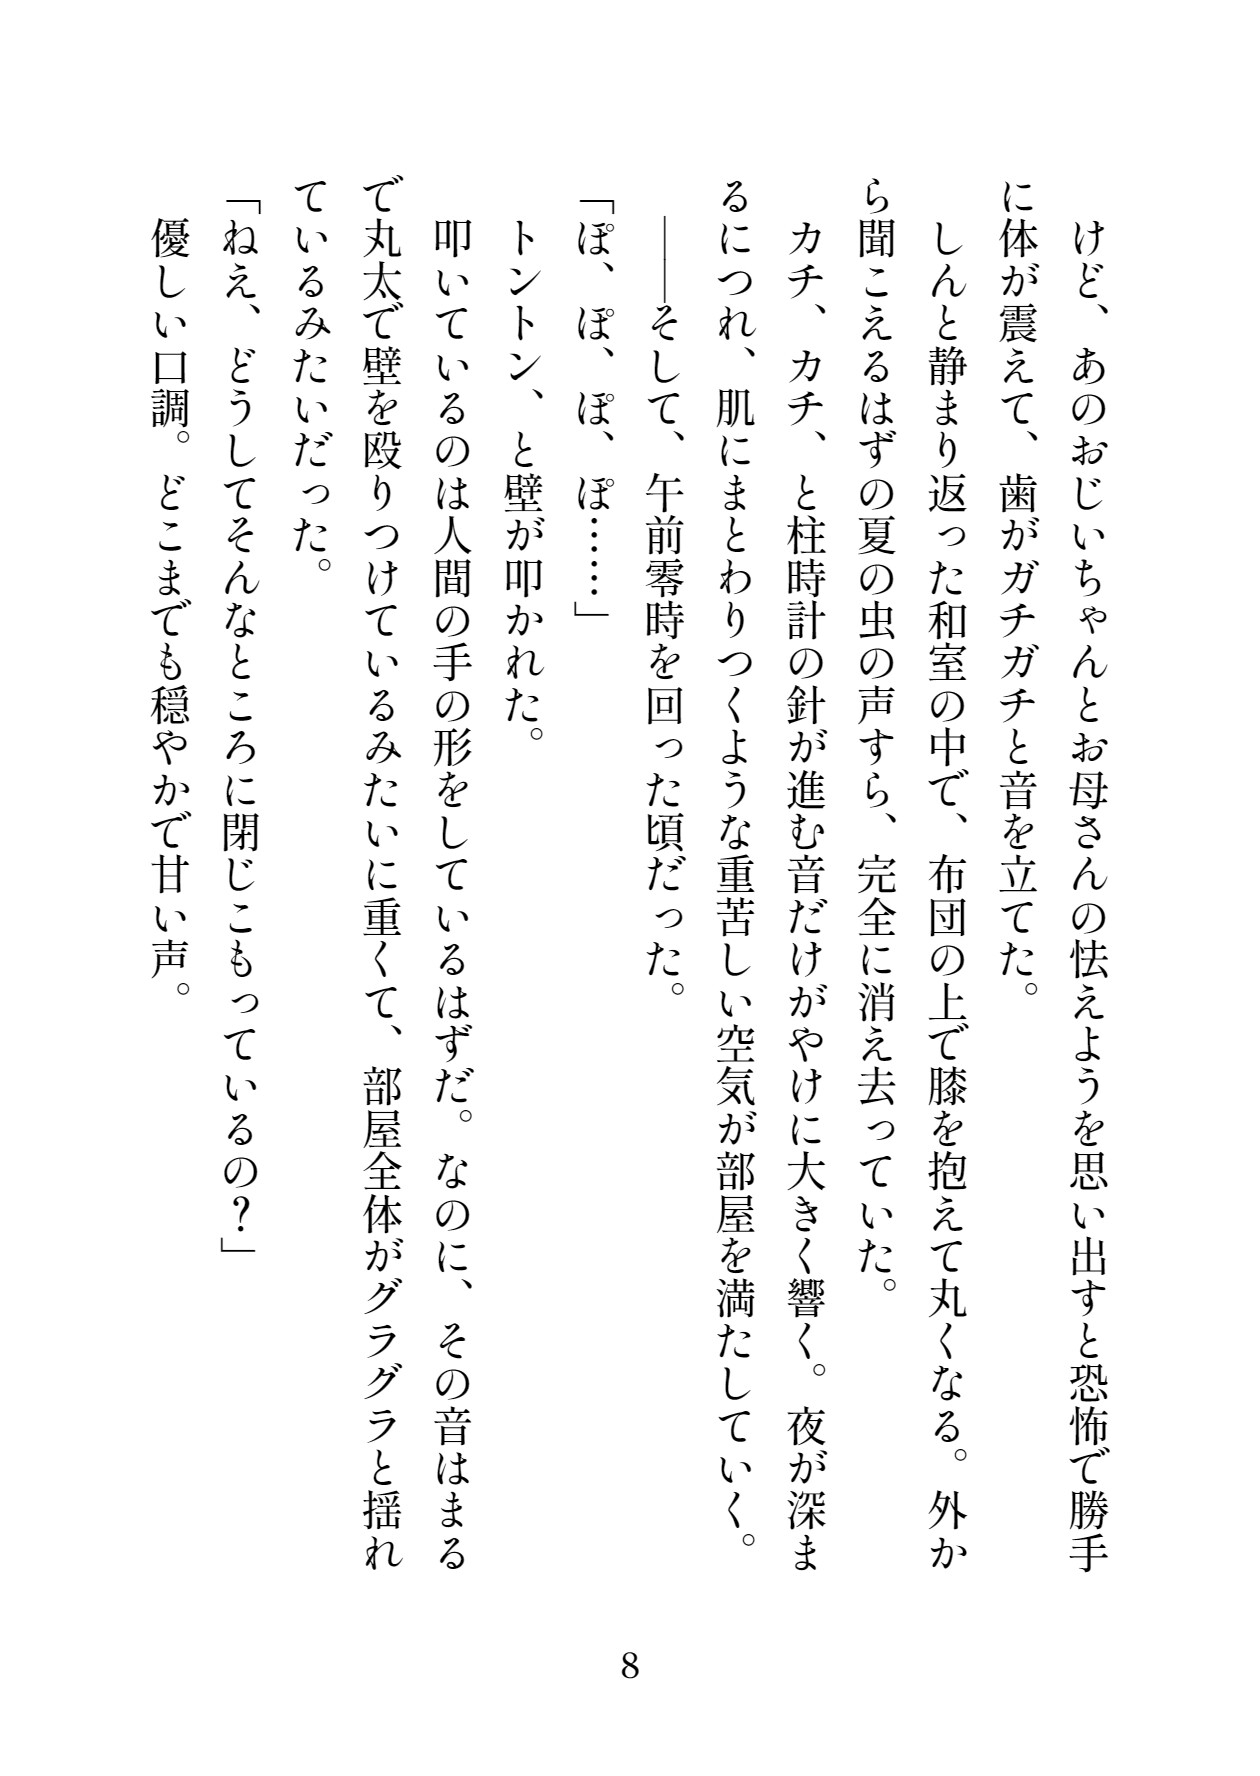 けど、あのおじいちゃんとお母さんの怯えようを思い出すと恐怖で勝手
に体が震えて、歯がガチガチと音を立てた。
　しんと静まり返った和室の中で、布団の上で膝を抱えて丸くなる。外か
ら聞こえるはずの夏の虫の声すら、完全に消え去っていた。
　カチ、カチ、と柱時計の針が進む音だけがやけに大きく響く。夜が深ま
るにつれ、肌にまとわりつくような重苦しい空気が部屋を満たしていく。
　――そして、午前零時を回った頃だった。
「ぽ、ぽ、ぽ、ぽ……」
　トントン、と壁が叩かれた。
　叩いているのは人間の手の形をしているはずだ。なのに、その音はまる
で丸太で壁を殴りつけているみたいに重くて、部屋全体がグラグラと揺れ
ているみたいだった。
「ねえ、どうしてそんなところに閉じこもっているの？」
　優しい口調。どこまでも穏やかで甘い声。
8